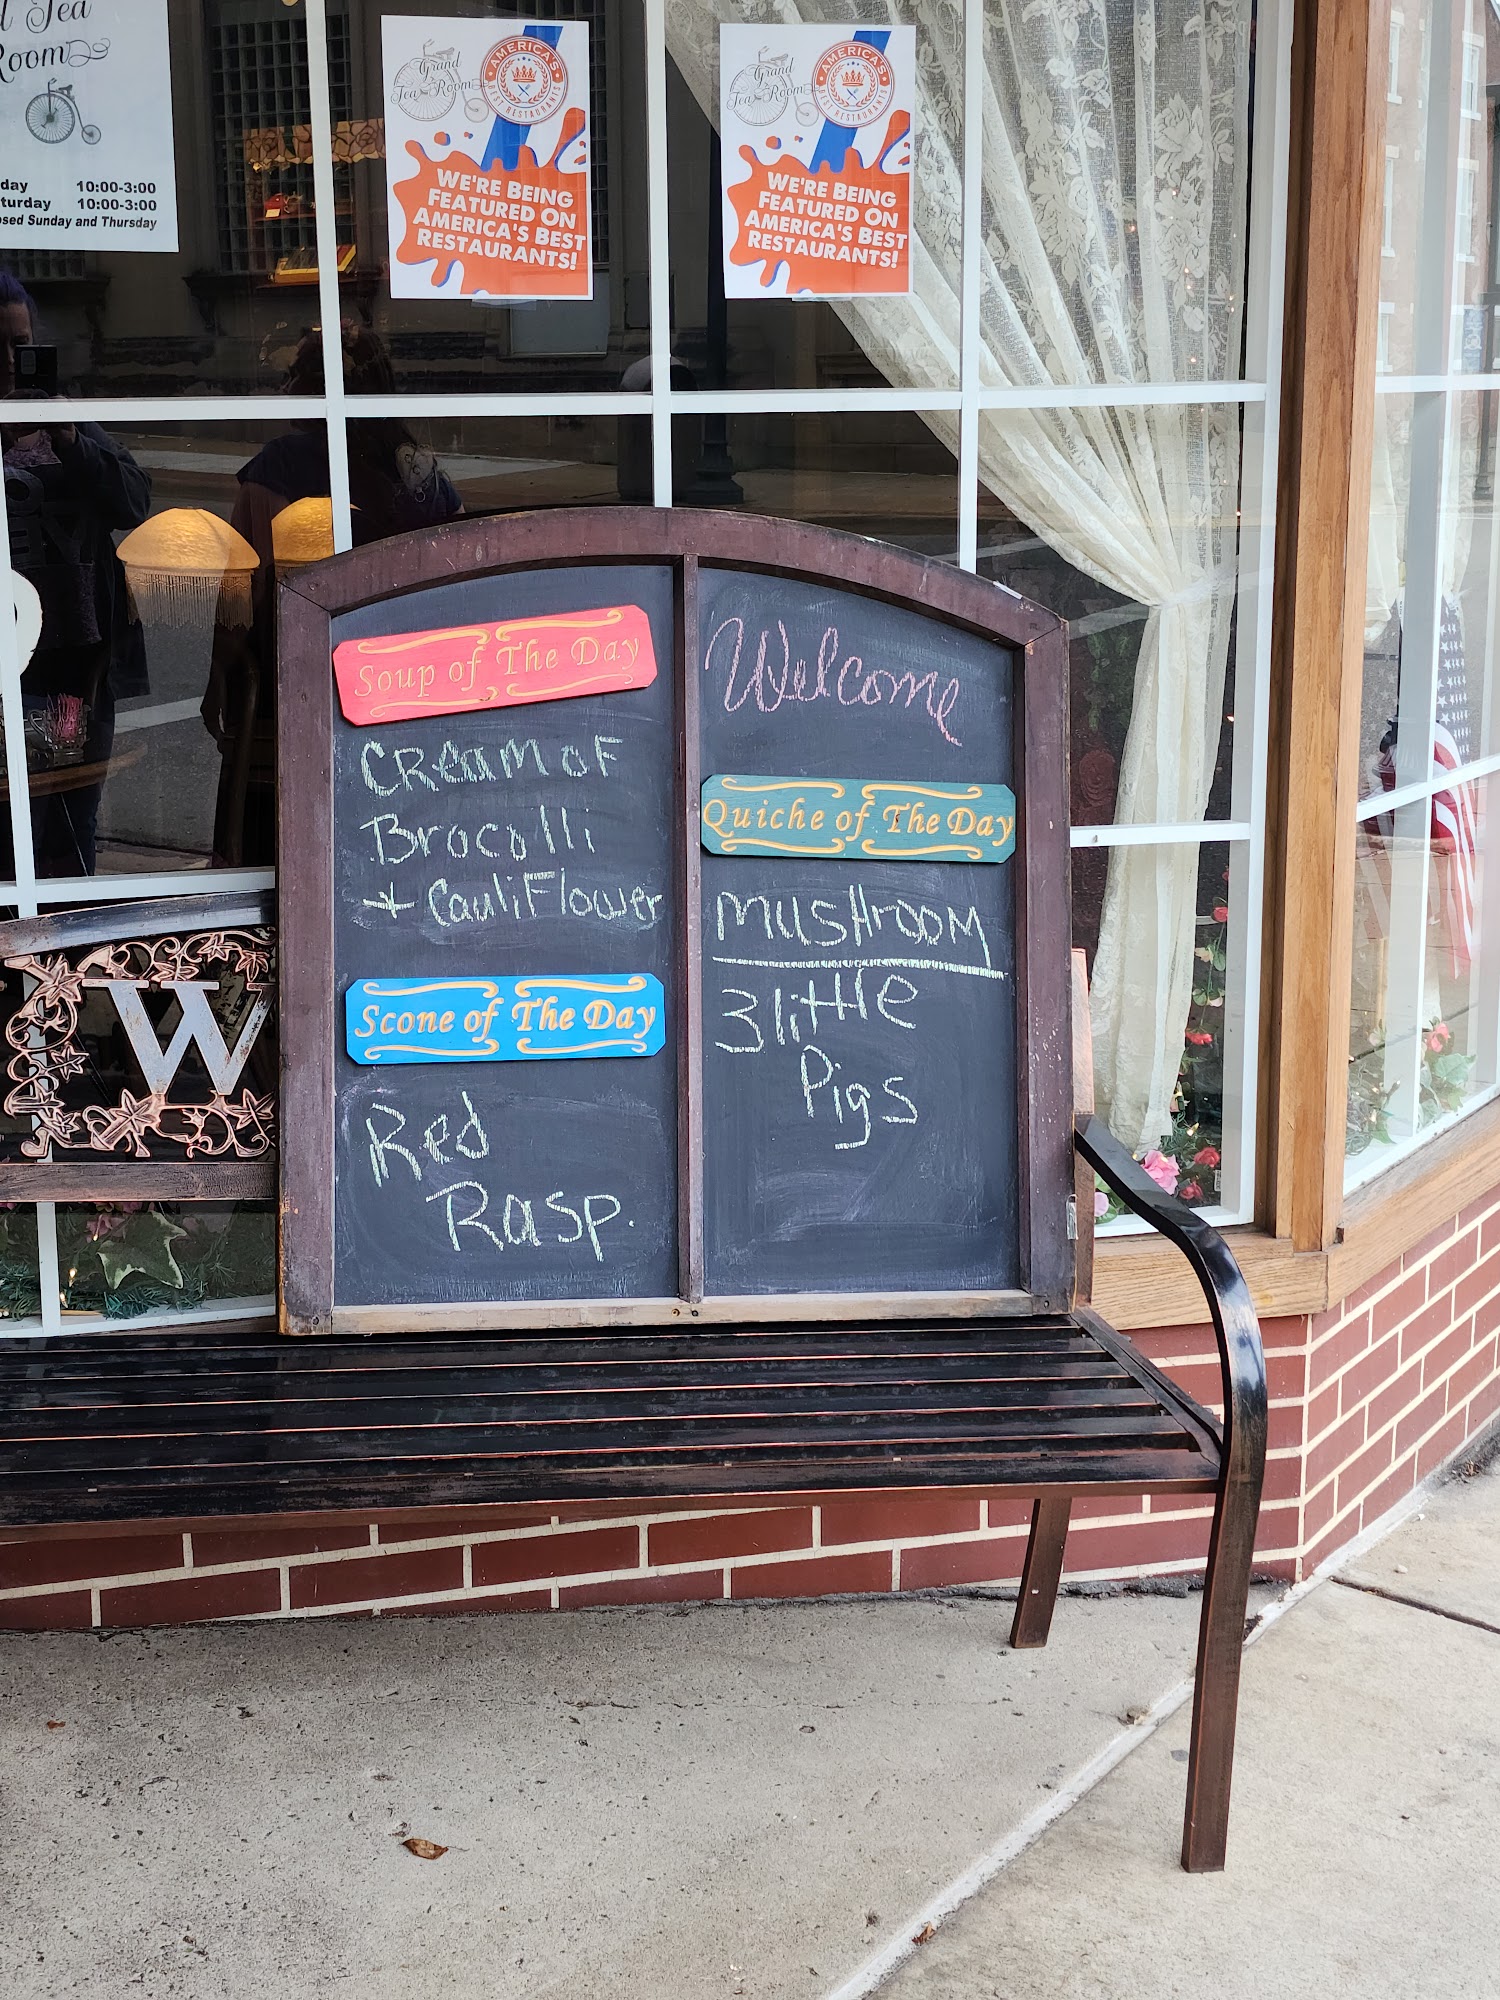 Tea
Room
day 10:00-3:00
turday 10:00-3:00
osed Sunday and Thursday
Grand
Tea Room
AMERICA'S
BEST RESTAURANTS
WE'RE BEING
FEATURED ON
AMERICA'S BEST
RESTAURANTS!
Grand
Tea Room
AMERICA'S
BEST RESTAURANTS
WE'RE BEING
FEATURED ON
AMERICA'S BEST
RESTAURANTS!
Soup of The Day
CReam oF
Brocolli
+ CauliFlower
Scone of The Day
Red
Rasp.
Welcome
Quiche of The Day
MusHrooM
3 little
Pigs
W